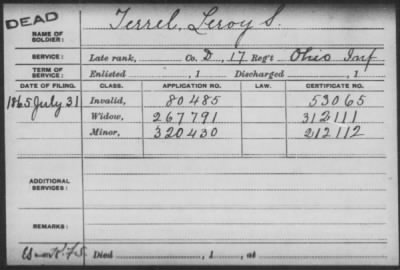 DEAD
NAME OF SOLDIER: Terrel, Leroy S.
SERVICE: Late rank, Co. D, 17 Reg't Ohio Inf
TERM OF SERVICE: Enlisted , 1 Discharged , 1
DATE OF FILING. CLASS. APPLICATION NO. LAW. CERTIFICATE NO.
1865 July 31 Invalid, 80485 53065
Widow, 267791 312111
Minor, 320430 212112
ADDITIONAL SERVICES:
REMARKS:
Died , 1 , at